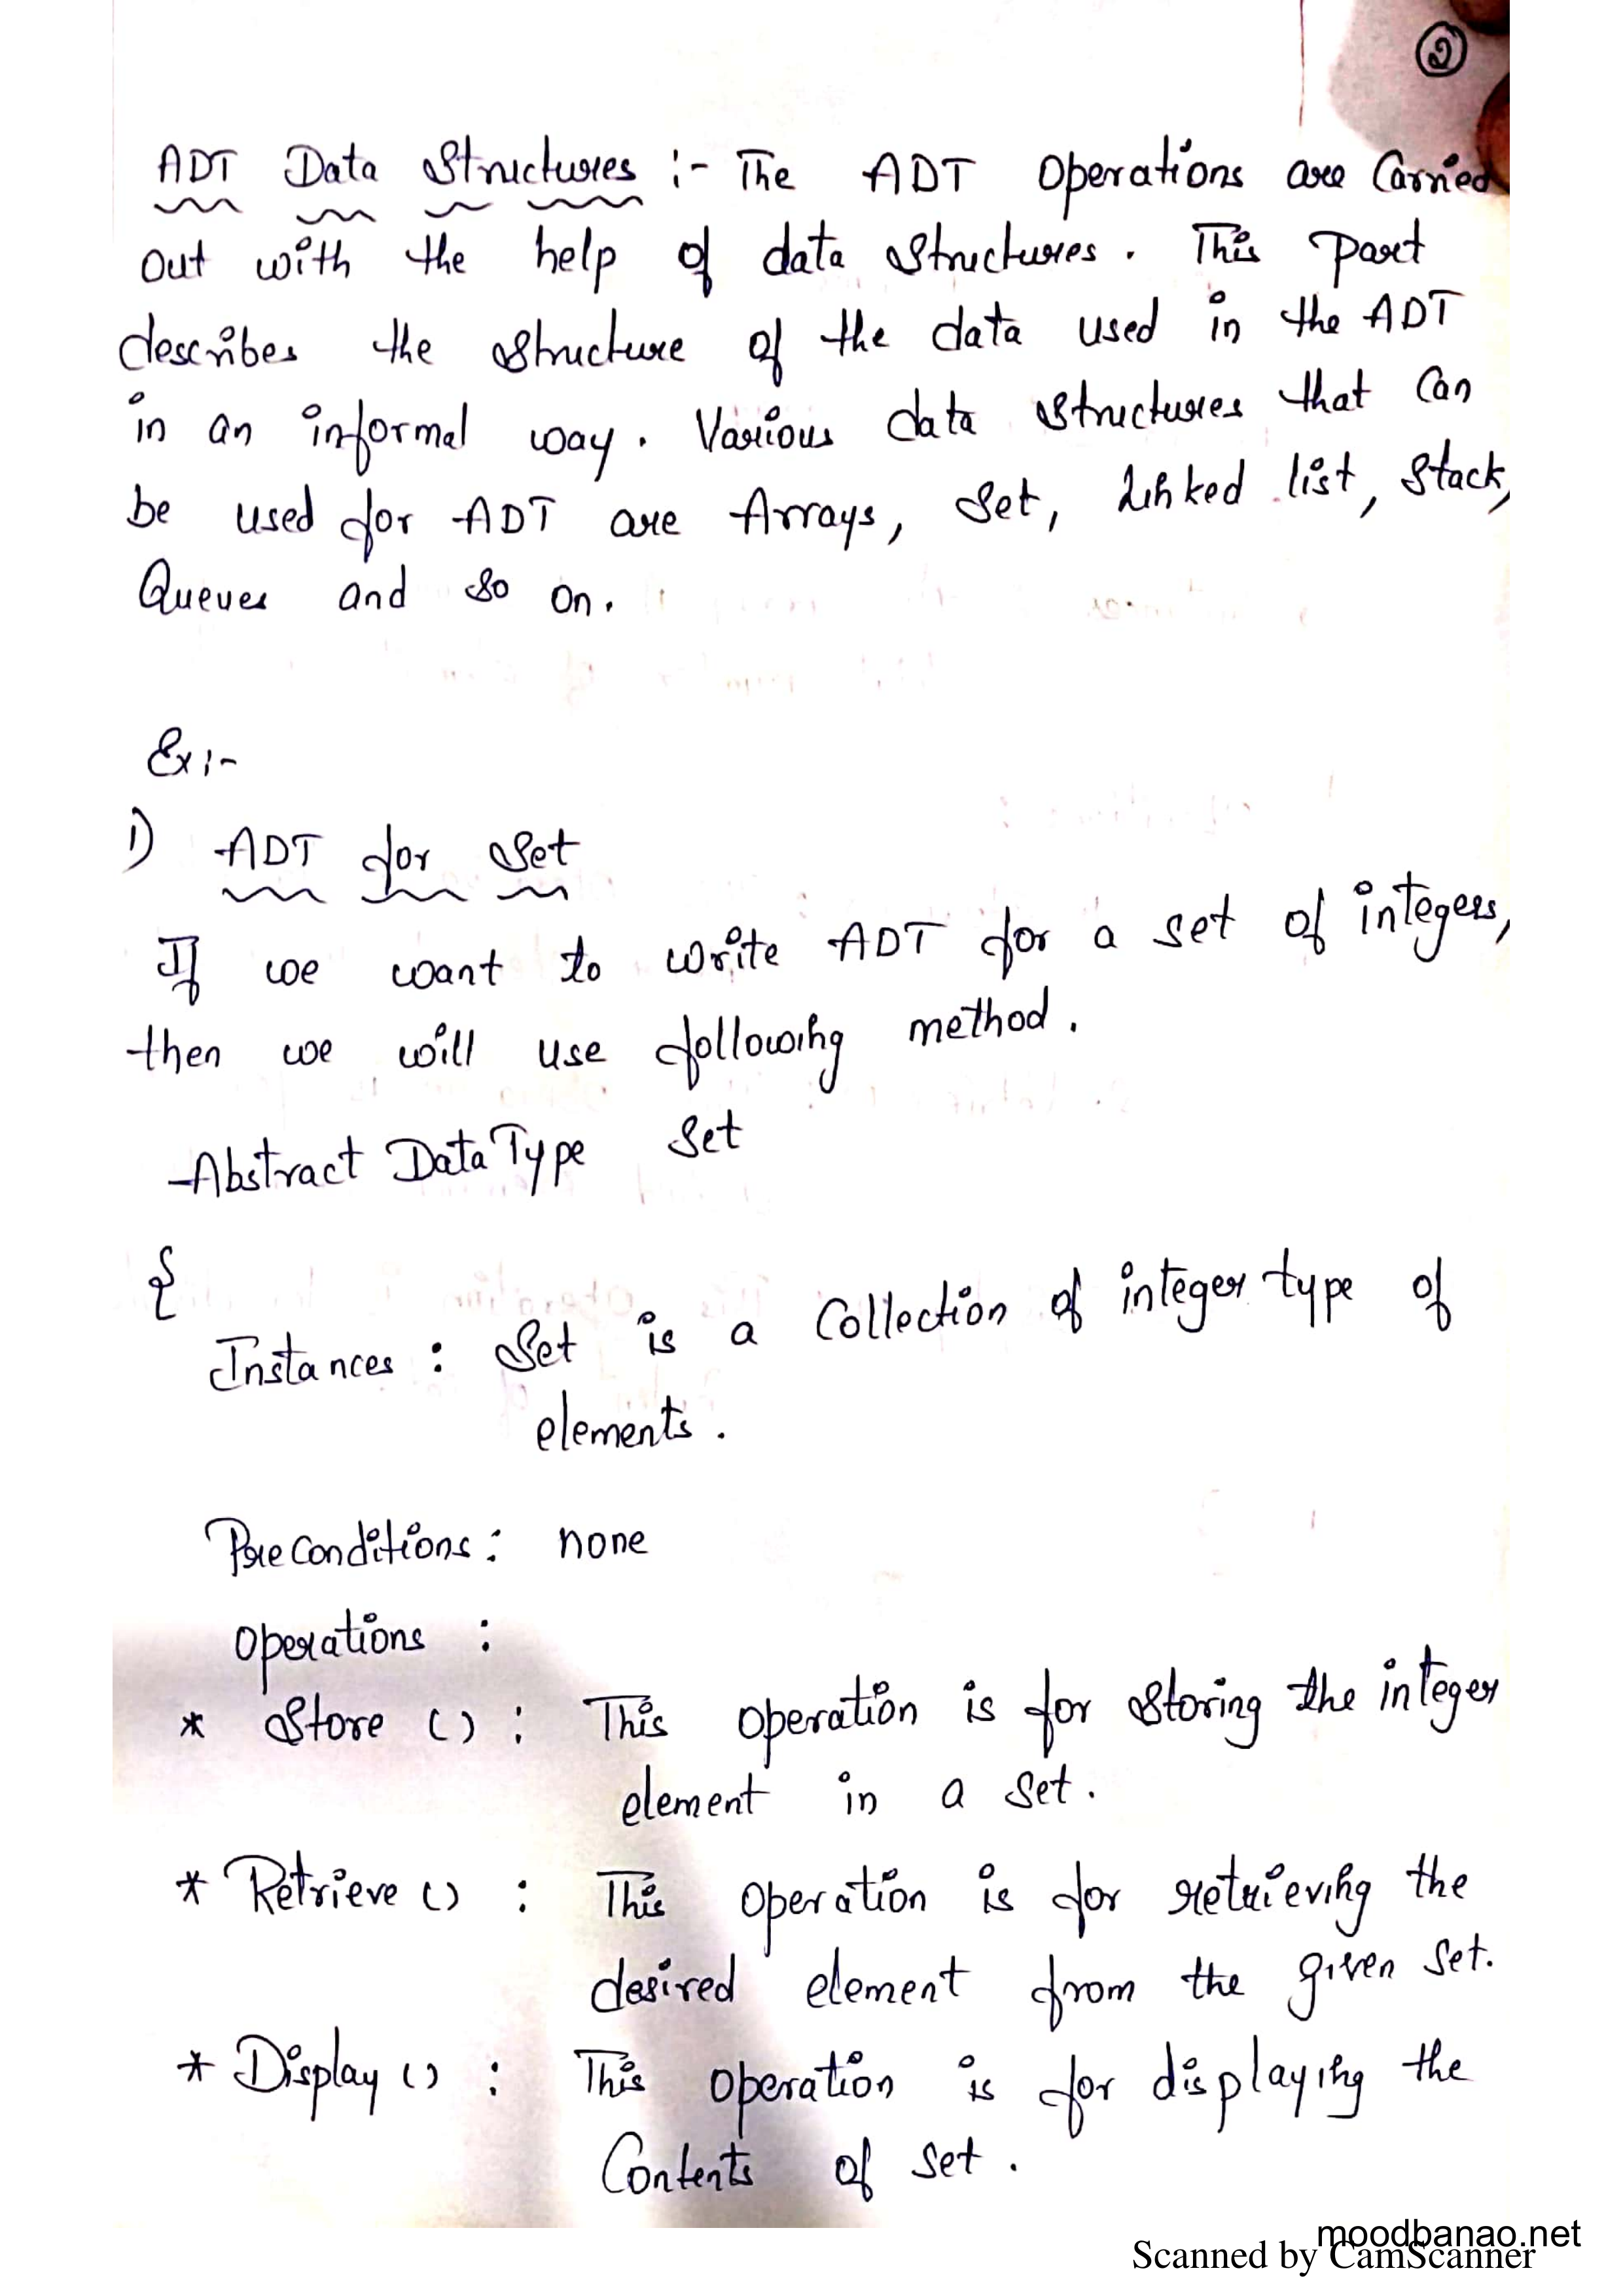 2
ADT Data Structures :- The ADT Operations are Carried
out with the help of data structures. This part
describes the structure of the data used in the ADT
in an informal way. Various data structures that Can
be used for ADT are Arrays, Set, Linked list, Stack,
Queues and so on.
Ex:-
1) ADT for Set
If we want to write ADT for a set of integers,
then we will use following method.
Abstract DataType Set
{
Instances : Set is a Collection of integer type of
elements.
PreConditions : none
Operations :
* Store () : This operation is for storing the integer
element in a set.
* Retrieve () : This operation is for retrieving the
desired element from the given set.
* Display () : This operation is for displaying the
Contents of set.
moodbanao.net
Scanned by CamScanner